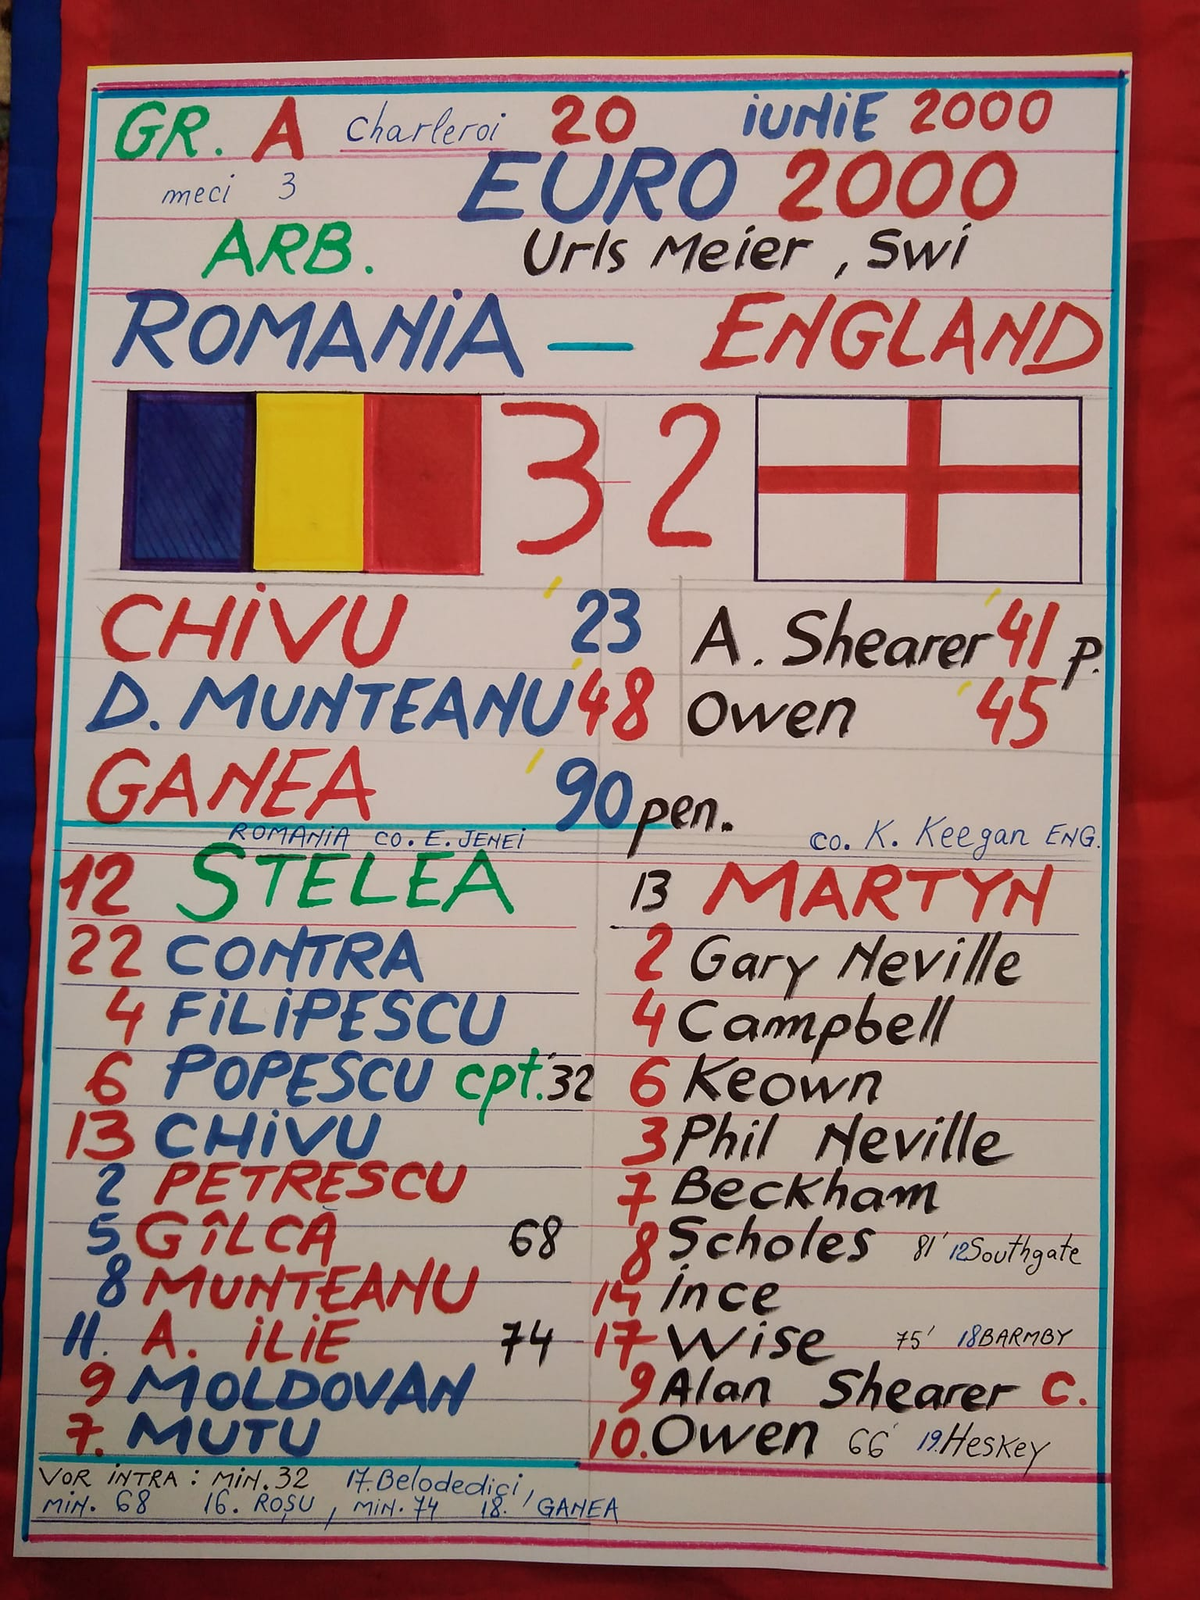 GR. A Charleroi 20 iUNiE 2000
meci 3 EURO 2000
ARB. Urls Meier, Swi
ROMANiA — ENGLAND
3-2
CHiVU '23 A. Shearer '41 p.
D. MUNTEANU '48 Owen '45
GANEA '90 pen.
ROMANiA co. E. JENEi co. K. Keegan ENG.
12 STELEA 13 MARTYN
22 CONTRA 2 Gary Neville
4 FiLiPESCU 4 Campbell
6 POPESCU cpt. '32 6 Keown
13 CHiVU 3 Phil Neville
2 PETRESCU 7 Beckham
5 GÎLCĂ 68 8 Scholes 81' 12 Southgate
8 MUNTEANU 14 ince
11. A. iLiE 74 17 Wise 75' 18 BARMBY
9 MOLDOVAN 9 Alan Shearer C.
7. MUTU 10. Owen 66' 19. Heskey
VOR iNTRA: MiN. 32 17. Belodedici,
MiN. 68 16. ROȘU, MiN. 74 18. GANEA